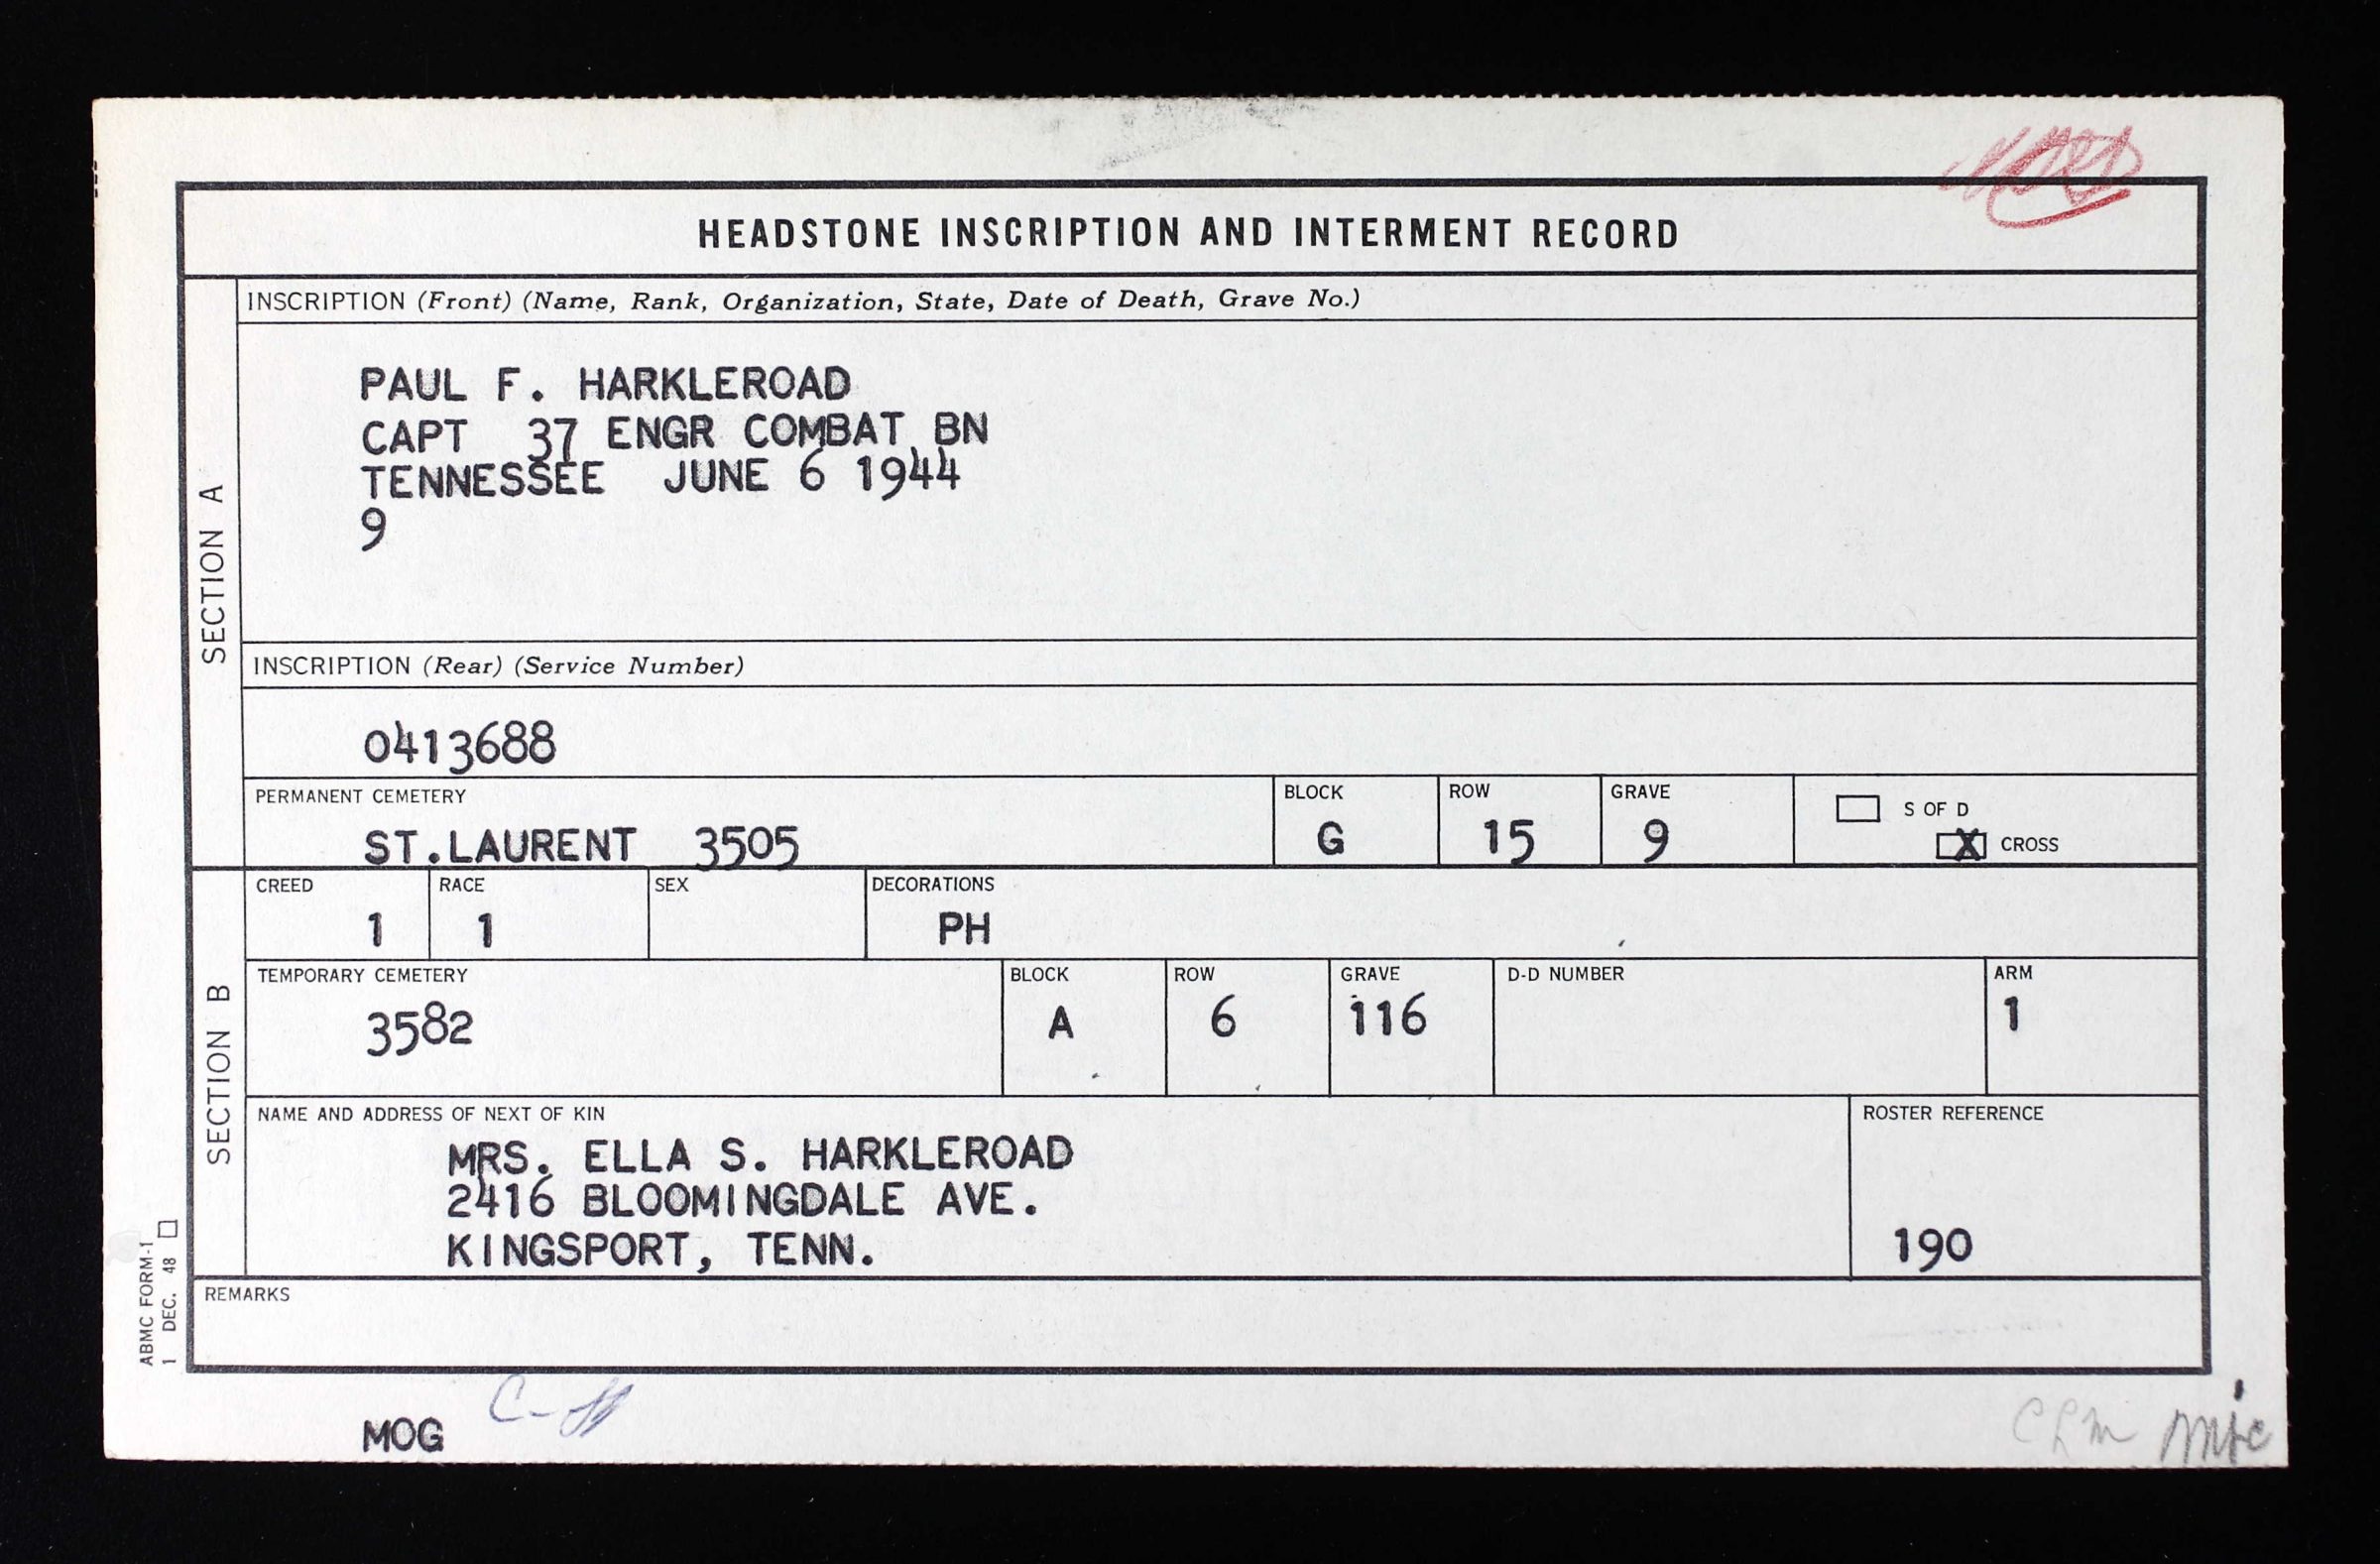 HEADSTONE INSCRIPTION AND INTERMENT RECORD
SECTION A
INSCRIPTION (Front) (Name, Rank, Organization, State, Date of Death, Grave No.)
PAUL F. HARKLEROAD
CAPT 37 ENGR COMBAT BN
TENNESSEE JUNE 6 1944
9
INSCRIPTION (Rear) (Service Number)
0413688
PERMANENT CEMETERY BLOCK ROW GRAVE S OF D
ST.LAURENT 3505 G 15 9 X CROSS
SECTION B
CREED RACE SEX DECORATIONS
1 1 PH
TEMPORARY CEMETERY BLOCK ROW GRAVE D-D NUMBER ARM
3582 A 6 116 1
NAME AND ADDRESS OF NEXT OF KIN ROSTER REFERENCE
MRS. ELLA S. HARKLEROAD
2416 BLOOMINGDALE AVE.
KINGSPORT, TENN. 190
REMARKS
ABMC FORM-1
1 DEC. 48
MOG